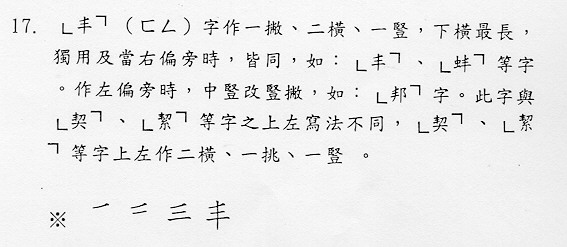 17. ﹂丰﹁（ㄈㄥ）字作一撇、二橫、一豎，下橫最長，
獨用及當右偏旁時，皆同，如：﹂丰﹁、﹂蚌﹁等字
。作左偏旁時，中豎改豎撇，如：﹂邦﹁字。此字與
﹂契﹁、﹂絜﹁等字之上左寫法不同，﹂契﹁、﹂絜
﹁等字上左作二橫、一挑、一豎 。
※ 一 二 三 丰